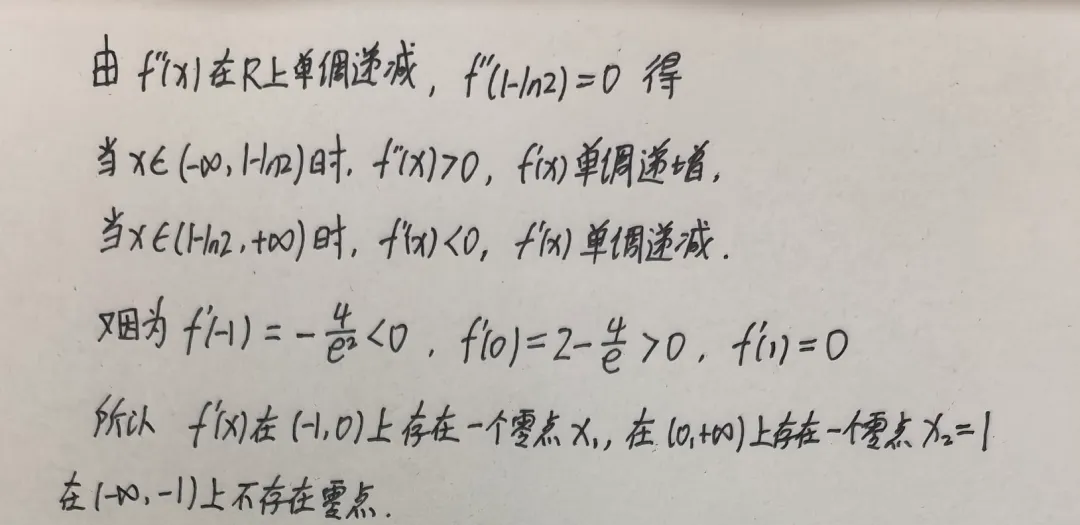 由 f''(x)在R上单调递减, f''(1-ln2)=0 得
当x∈(-∞, 1-ln2)时, f''(x)>0, f'(x)单调递增,
当x∈(1-ln2, +∞)时, f''(x)<0, f'(x)单调递减.
又因为 f'(-1) = -4/e² <0, f'(0)=2-4/e >0, f'(1)=0
所以 f'(x)在(-1,0)上存在一个零点x₁, 在(0,+∞)上存在一个零点x₂=1
在(-∞,-1)上不存在零点.